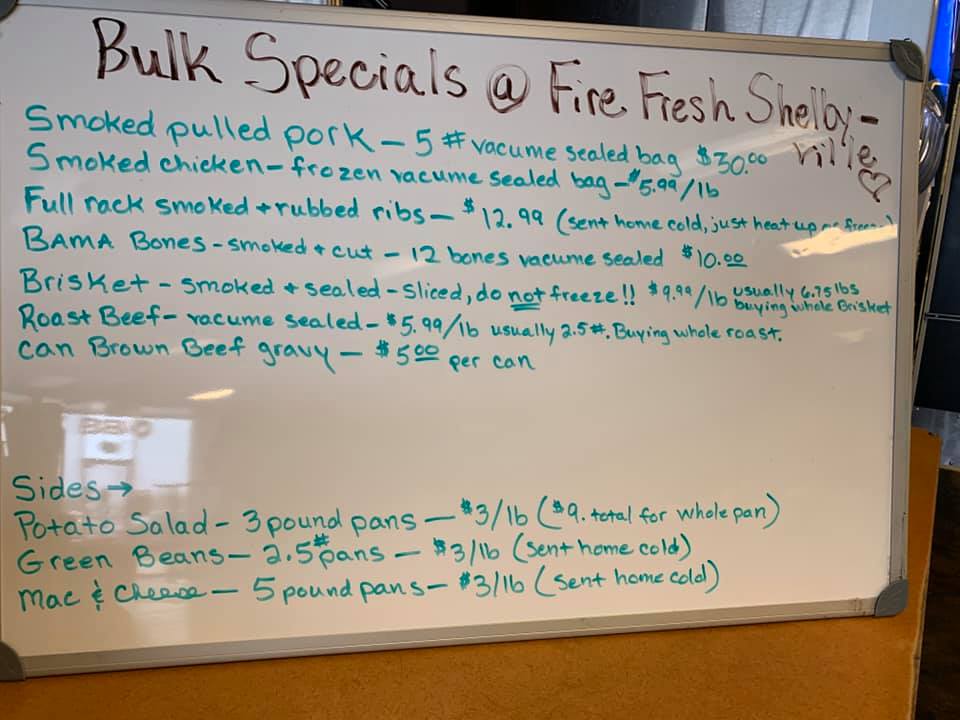 Bulk Specials @ Fire Fresh Shelby-
ville
Smoked pulled pork - 5 # vacume sealed bag $30.00
Smoked chicken - frozen vacume sealed bag - $5.99/lb
Full rack smoked + rubbed ribs - $12.99 (sent home cold, just heat up or freeze)
BAMA Bones - smoked + cut - 12 bones vacume sealed $10.00
Brisket - smoked + sealed - sliced, do not freeze!! $9.99/lb usually 6.75 lbs
buying whole Brisket
Roast Beef - vacume sealed - $5.99/lb usually 2.5#. Buying whole roast.
can Brown Beef gravy - $5.00 per can
Sides →
Potato Salad - 3 pound pans - $3/lb ($9. total for whole pan)
Green Beans - 2.5# pans - $3/lb (sent home cold)
Mac & Cheese - 5 pound pans - $3/lb (sent home cold)